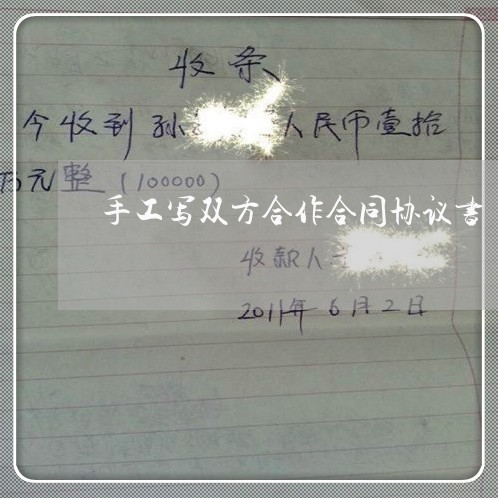 收条
今收到孙 人民币壹拾
万元整（100000）
手工写双方合作合同协议书
收款人
2011年6月2日